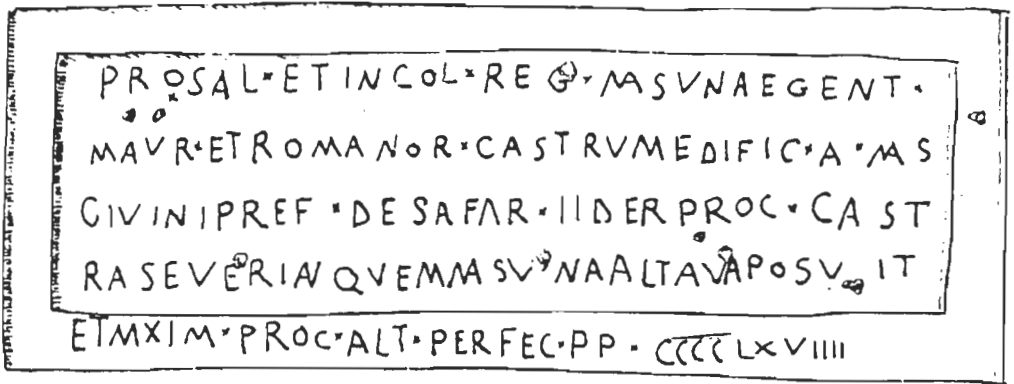 PROSAL·ETINCOL·REG·MSVNAEGENT·
MAVR·ETROMANOR·CASTRVMEDIFIC·A·MS
GIVINIPREF·DESAFAR·IIDERPROC·CAST
RASEVERIANQVEMMASVNAALTAVAPOSVIT
ETMXIM·PROC·ALT·PERFEC·PP·CCCCLXVIIII